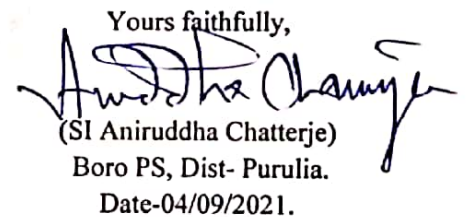 Yours faithfully,
Aniruddha Chatterje
(SI Aniruddha Chatterje)
Boro PS, Dist- Purulia.
Date-04/09/2021.